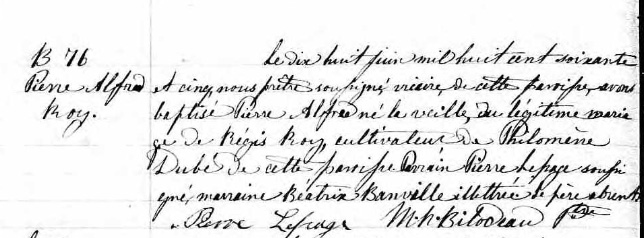 B 76
Pierre Alfred
Roy.
Le dix huit juin mil huit cent soixante
et cinq, nous prêtre soussigné, vicaire, de cette paroisse, avons
baptisé Pierre Alfred né la veille, du légitime maria
ge de Régis Roy, cultivateur de Philomène
Dubé de cette paroisse Parrain Pierre Lepage soussi
gné, marraine Béatrix Banville illettrée le père absent
Pierre Lepage M. N. Bilodeau Ptre